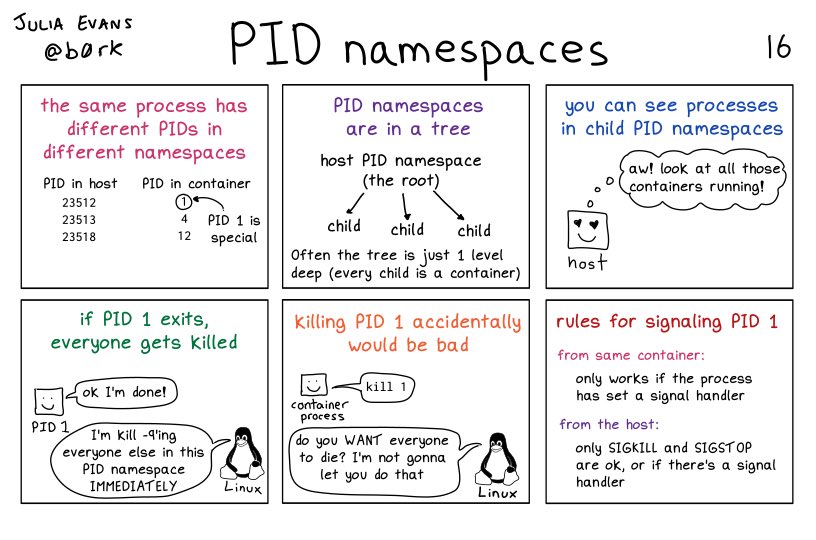 JULIA EVANS
@b0rk
PID namespaces
16
the same process has
different PIDs in
different namespaces
PID in host PID in container
23512 1
23513 4
23518 12
PID 1 is
special
PID namespaces
are in a tree
host PID namespace
(the root)
child child child
Often the tree is just 1 level
deep (every child is a container)
you can see processes
in child PID namespaces
aw! look at all those
containers running!
host
if PID 1 exits,
everyone gets killed
ok I'm done!
PID 1
I'm kill -9'ing
everyone else in this
PID namespace
IMMEDIATELY
Linux
killing PID 1 accidentally
would be bad
kill 1
container
process
do you WANT everyone
to die? I'm not gonna
let you do that
Linux
rules for signaling PID 1
from same container:
only works if the process
has set a signal handler
from the host:
only SIGKILL and SIGSTOP
are ok, or if there's a signal
handler